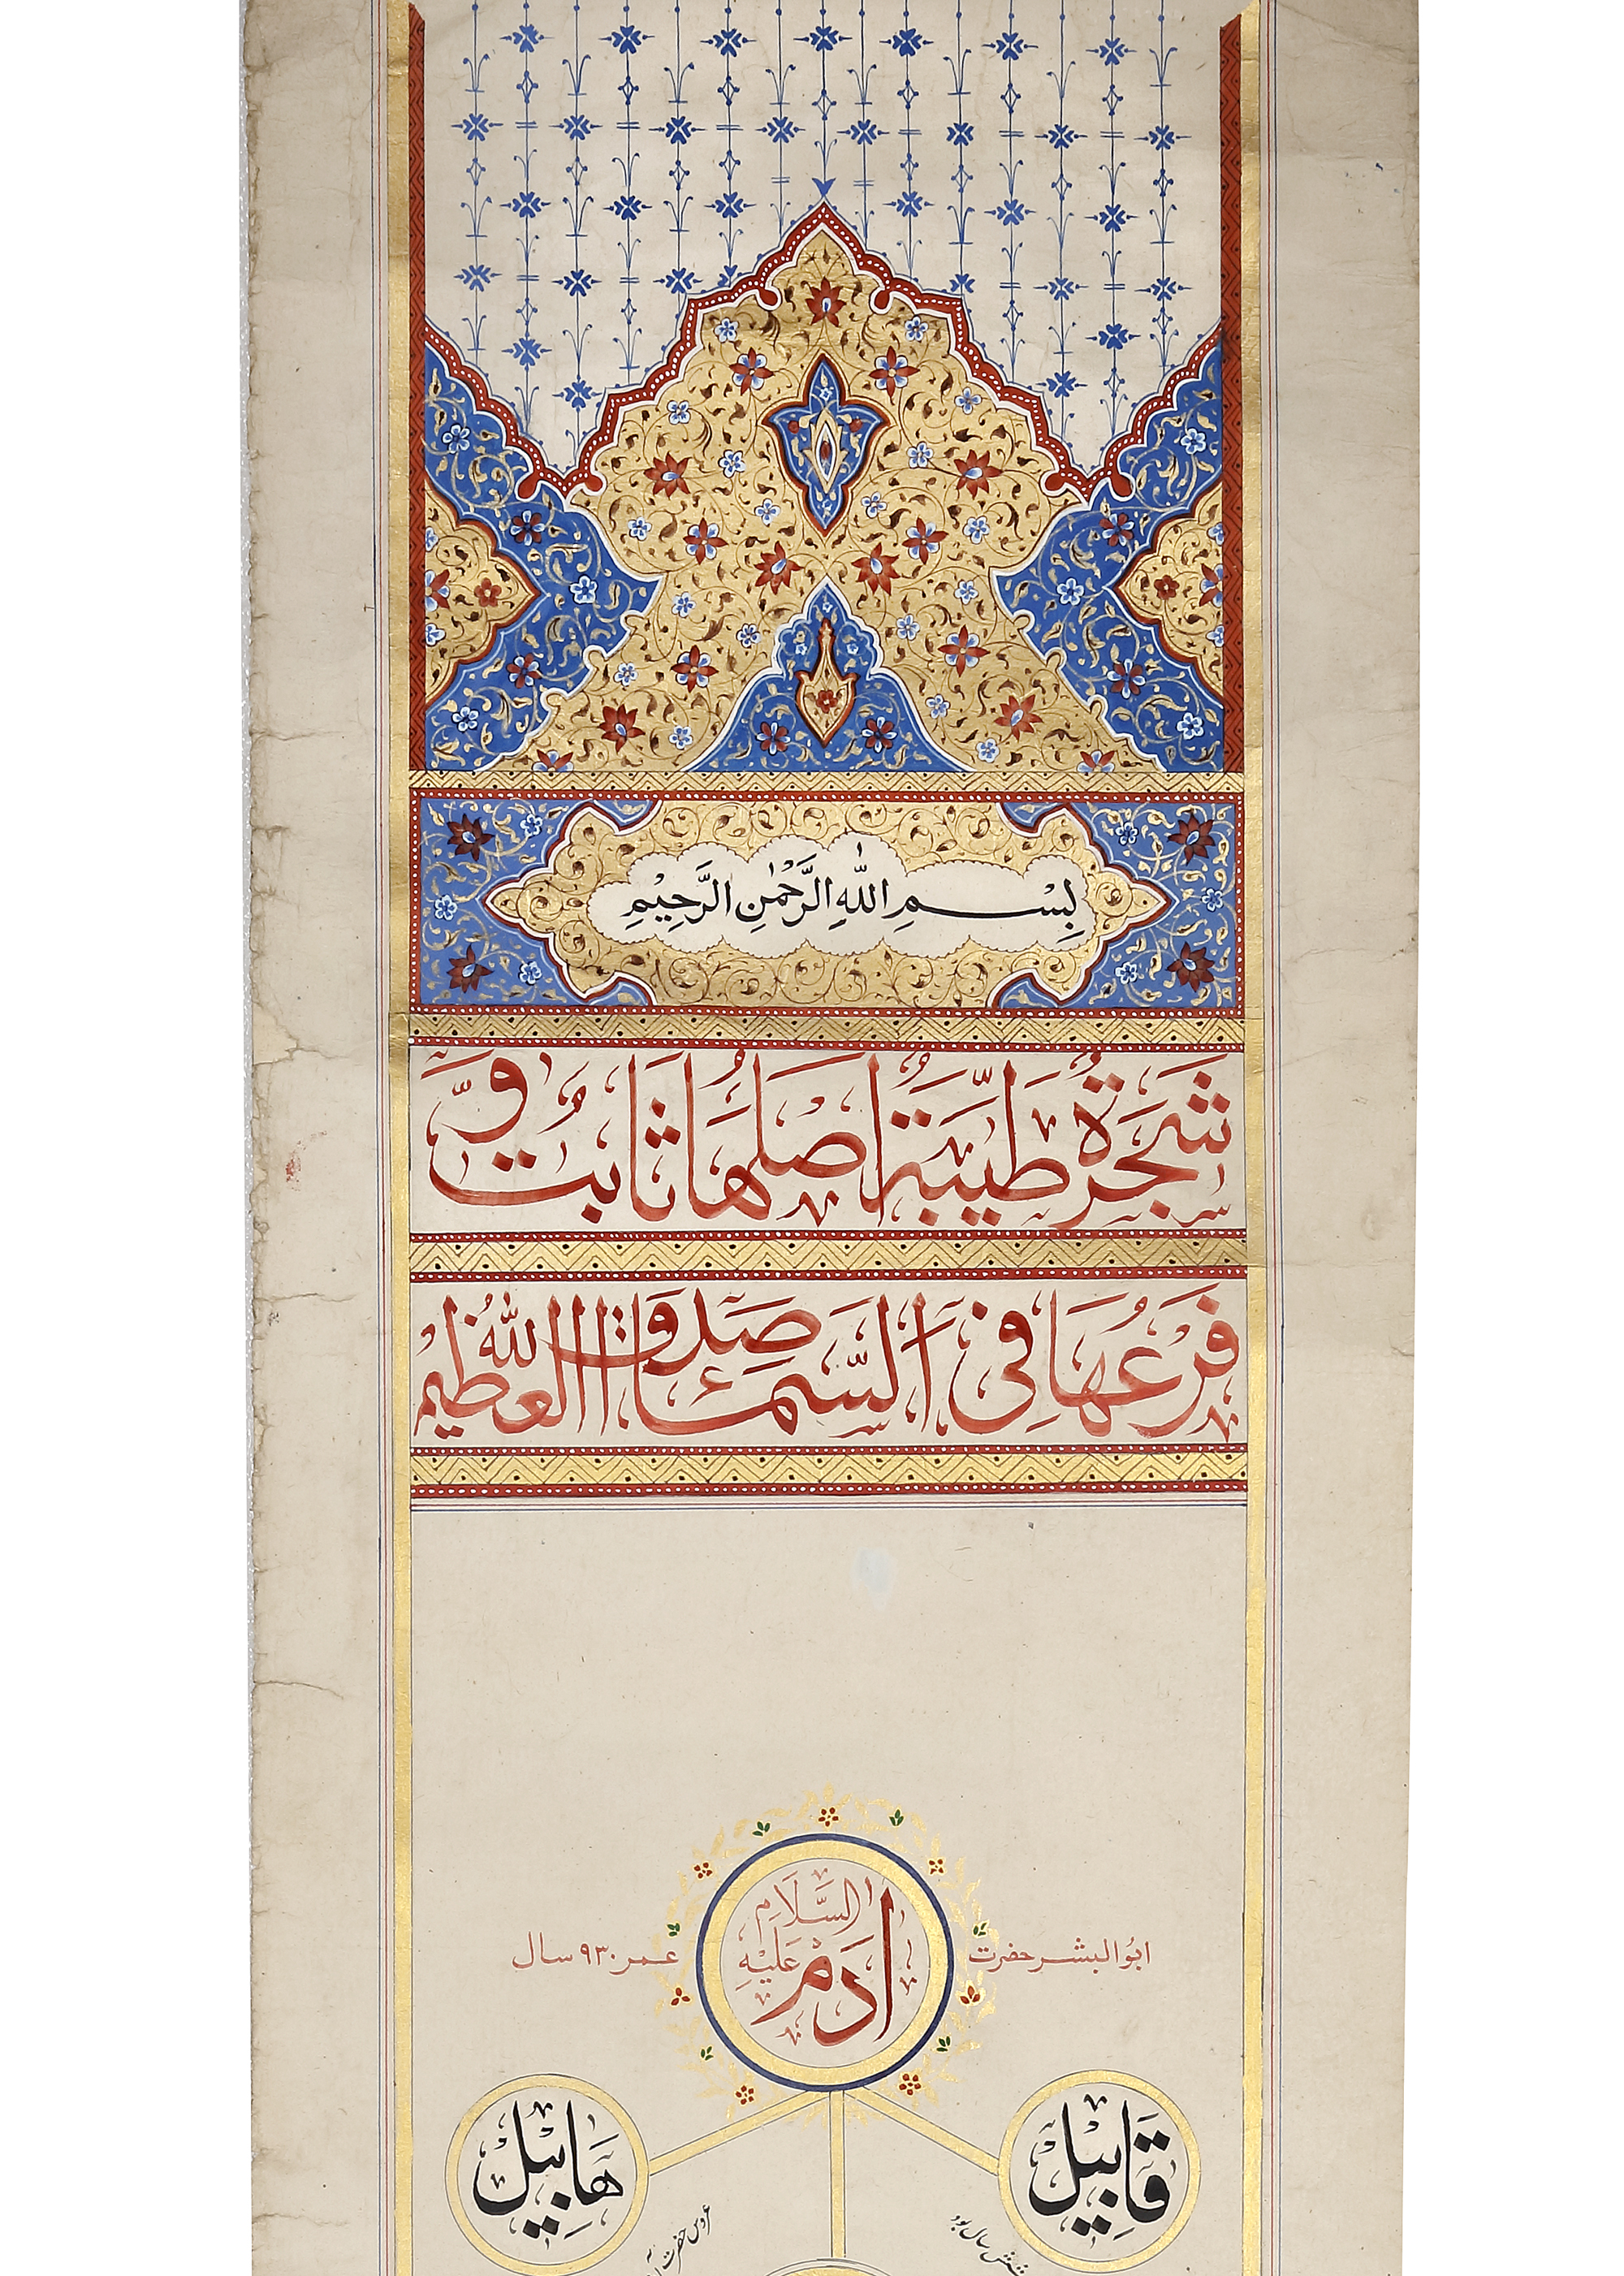 بِسْمِ اللّٰهِ الرَّحْمٰنِ الرَّحِيْمِ
شَجَرَةٌ طَيِّبَةٌ اَصْلُهَا ثَابِتٌ وَّ
فَرْعُهَا فِى السَّمَآءِ صَدَقَ اللّٰهُ الْعَظِيْم
ابُو البشر حضرت
اٰدَمْ عَلَيْهِ السَّلَامِ
عمر ٩٣٠ سال
قَابِيل
هَابِيل
سال بود
عروس حضرت